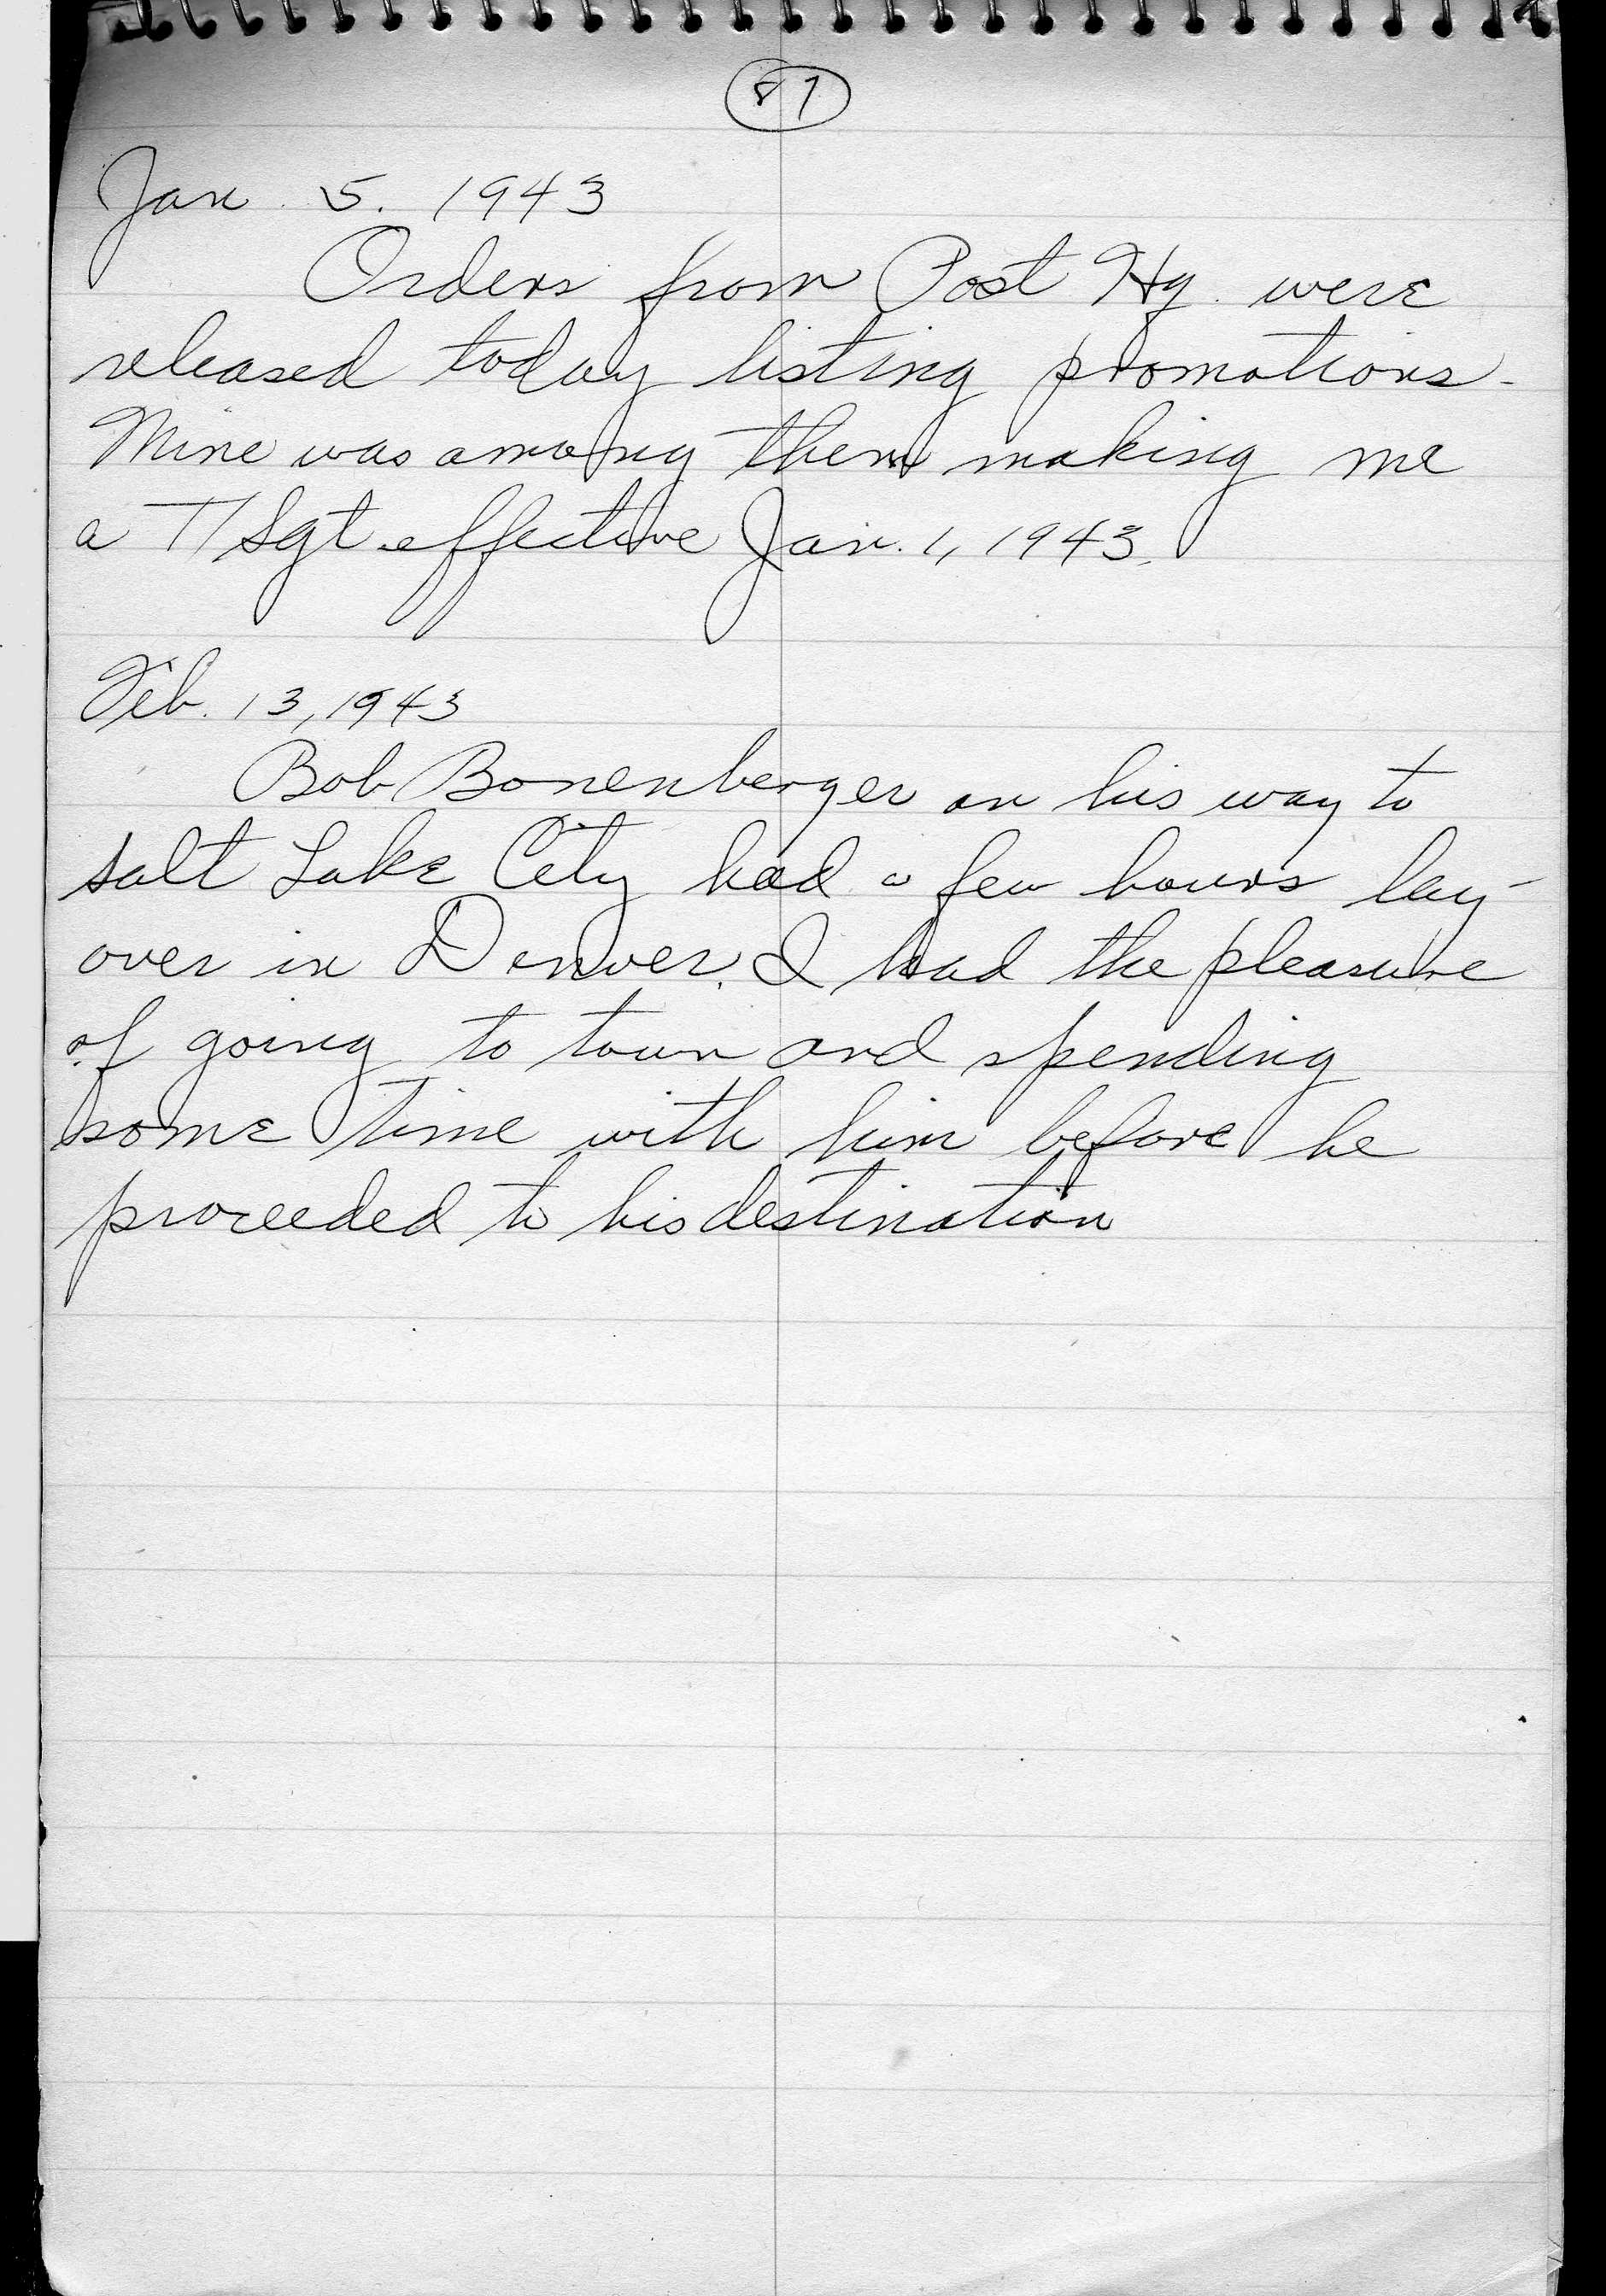 87
Jan. 5. 1943
Orders from Post Hq. were
released today listing promotions.
Mine was among them making me
a T/Sgt effective Jan. 1, 1943.
Feb. 13, 1943
Bob Bonenberger on his way to
Salt Lake City had a few hours lay-
over in Denver. I had the pleasure
of going to town and spending
some time with him before he
proceeded to his destination